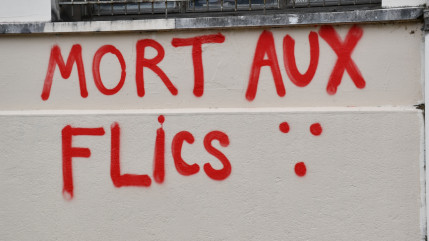 MORT AUX
FLiCS